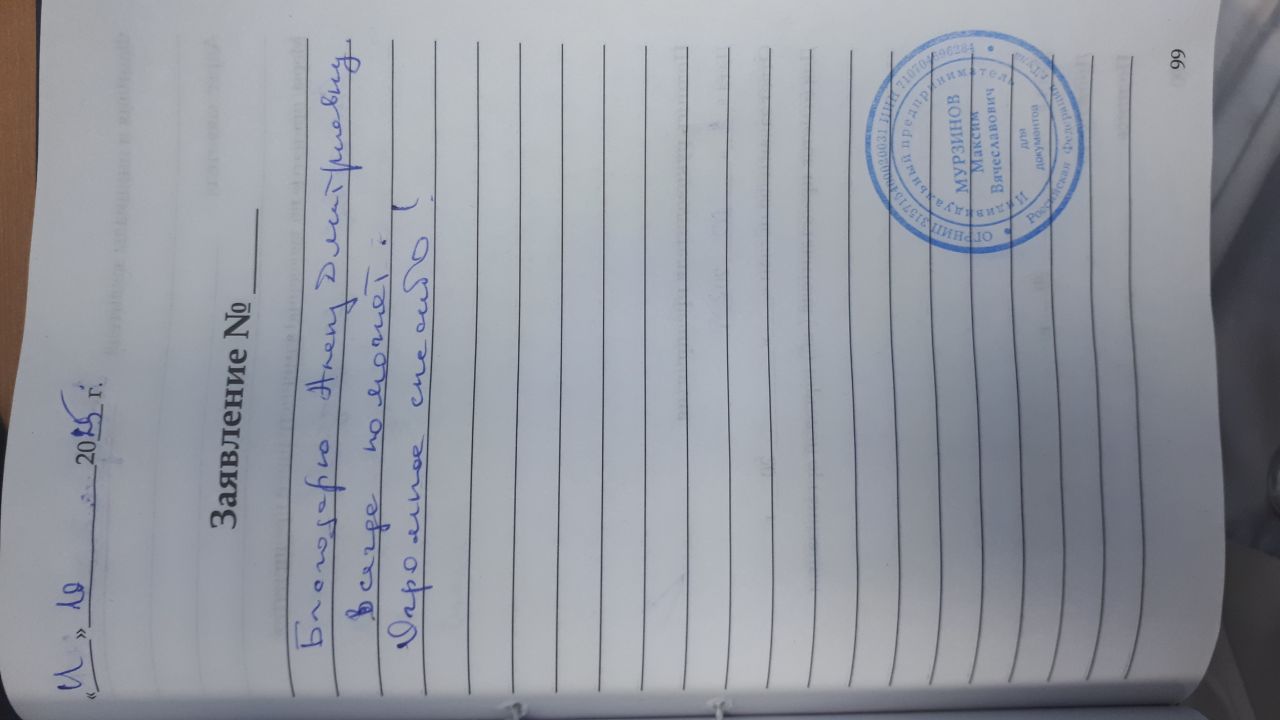 « 11 » 10 2025 г.
Заявление № ____
Благодарю Алену Дмитриевну.
Всегда помогает.
Огромное спасибо!
ОГРНИП 315715400020031 ИНН 710704696284
Индивидуальный предприниматель
МУРЗИНОВ
Максим
Вячеславович
для
документов
Российская Федерация г.Тула
99